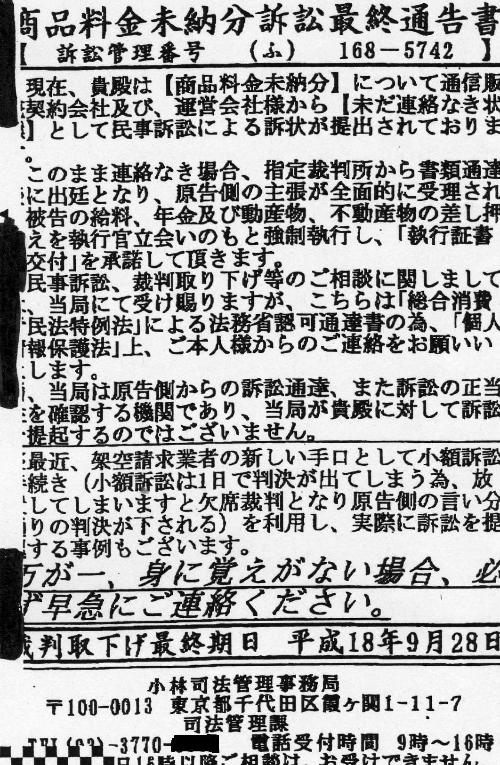 商品料金未納分訴訟最終通告書
【 訴訟管理番号 （ふ） 168-5742 】
現在、貴殿は【商品料金未納分】について通信販
契約会社及び、運営会社様から【未だ連絡なき状
】として民事訴訟による訴状が提出されておりま
。
このまま連絡なき場合、指定裁判所から書類通達
に出廷となり、原告側の主張が全面的に受理され
被告の給料、年金及び動産物、不動産物の差し押
えを執行官立会いのもと強制執行し、「執行証書
交付」を承諾して頂きます。
民事訴訟、裁判取り下げ等のご相談に関しまして
、当局にて受け賜りますが、こちらは「総合消費
民法特例法」による法務省認可通達書の為、「個人
報保護法」上、ご本人様からのご連絡をお願いい
します。
、当局は原告側からの訴訟通達、また訴訟の正当
を確認する機関であり、当局が貴殿に対して訴訟
提起するのではございません。
最近、架空請求業者の新しい手口として小額訴訟
続き（小額訴訟は1日で判決が出てしまう為、放
してしまいますと欠席裁判となり原告側の言い分
りの判決が下される）を利用し、実際に訴訟を提
する事例もございます。
万が一、身に覚えがない場合、必
ず早急にご連絡ください。
裁判取下げ最終期日 平成18年9月28日
小林司法管理事務局
〒100-0013 東京都千代田区霞ヶ関1-11-7
司法管理課
TEL(03)-3770- 電話受付時間 9時～16時
日16時以降ご相談は、お受けできません